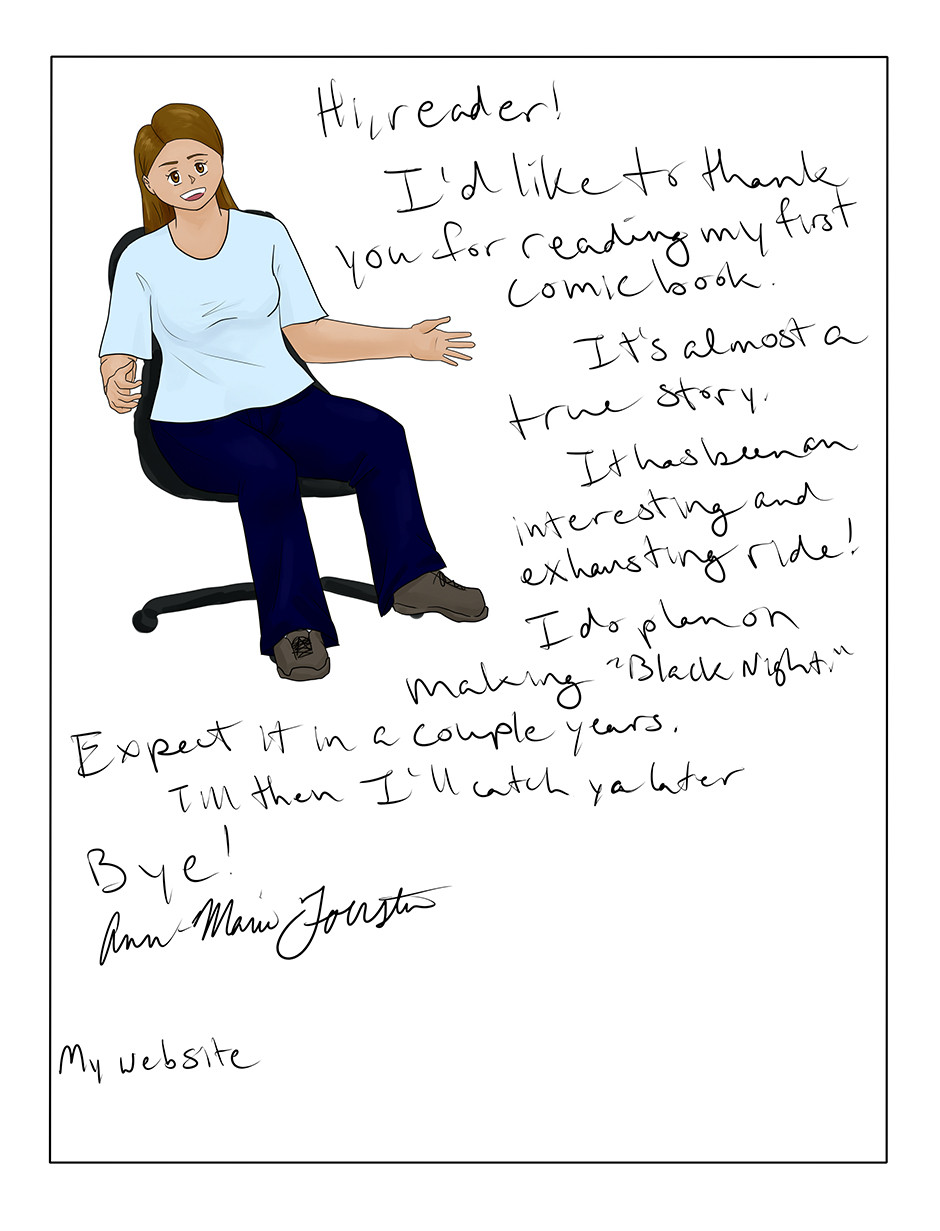 Hi, reader!
I'd like to thank
you for reading my first
comic book.
It's almost a
true story.
It has been an
interesting and
exhausting ride!
I do plan on
making "Black Night."
Expect it in a couple years.
Till then I'll catch ya later
Bye!
Ann-Marie
My website